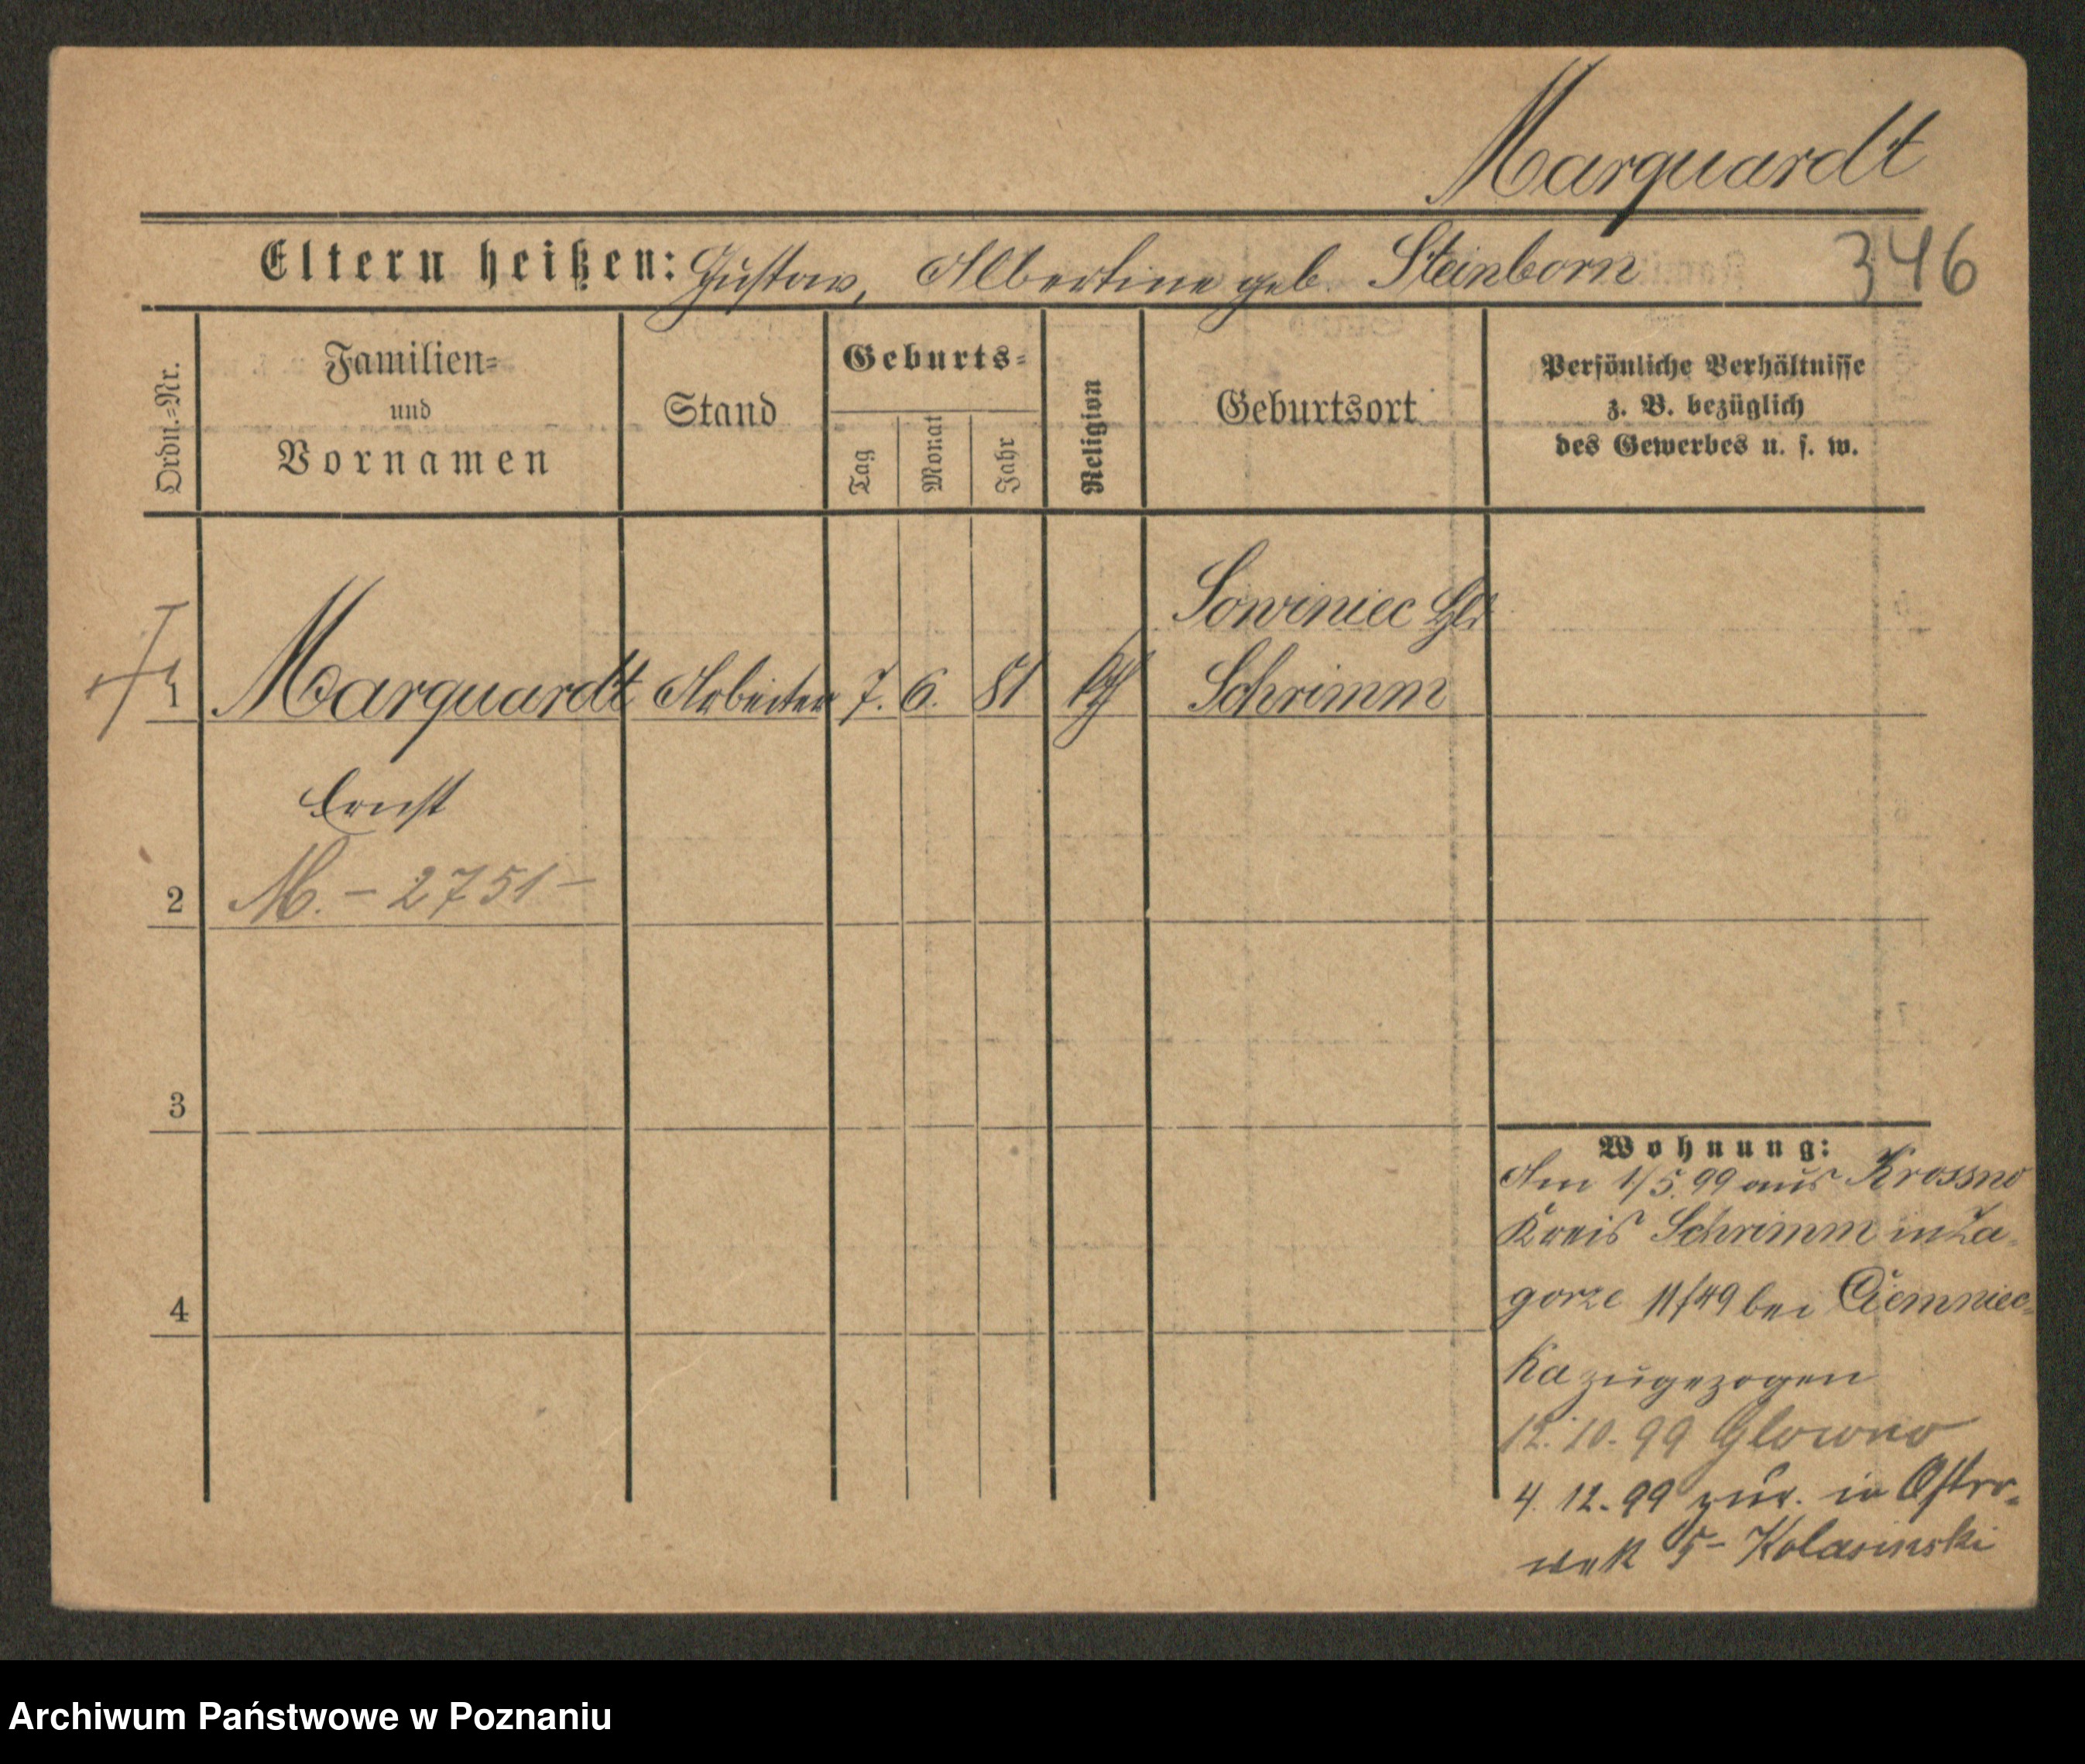 Marquardt
Eltern heißen: Gustav, Albertine geb. Steinborn 346
Ordn.=Nr.
Familien=
und
Vornamen
Stand
Geburts=
Tag
Monat
Jahr
Religion
Geburtsort
Persönliche Verhältnisse
z. B. bezüglich
des Gewerbes u. s. w.
Sowiniec
1 Marquardt Arbeiter 7. 6. 81 Schrimm
Ernst
2 M. - 2751 -
3
4
Wohnung:
Am 1/5. 99 aus Krossno
Kreis Schrimm in Za-
gorze 11/49 bei Ciemniec-
ka zugezogen
12. 10. 99 Glowno
4. 12. 99 zur. in Ostro-
wek 5 - Kolasinski
Archiwum Państwowe w Poznaniu